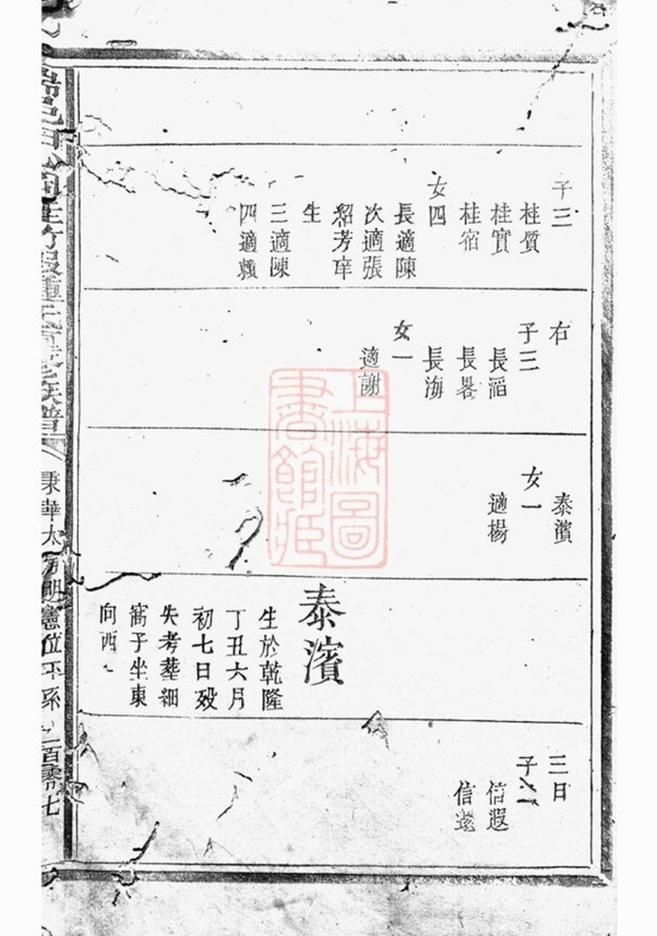 子三
桂質
桂實
桂宿
女四
長適陳
次適張
紹芳
生
三適陳
四適賴
右
子三
長湢
長畧
長海
女一
適謝
泰濱
女一
適楊
泰濱
生於乾隆
丁丑六月
初七日歿
失考塟細
窩子坐東
向西
三日
子二
信遐
信
秉華太房明憲位下系 二百零七
上海圖
書館藏